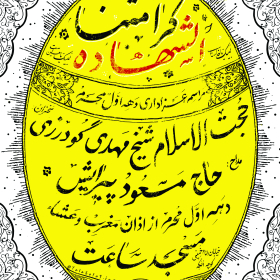 کرامتنا
الشهاده
مراسم عزاداری دهه اول محرم
حجت الاسلام شیخ مهدی گودرزی
مداح:
حاج مسعود پیرایش
دهه اول محرم از اذان مغرب و عشاء
مسجد ساعت